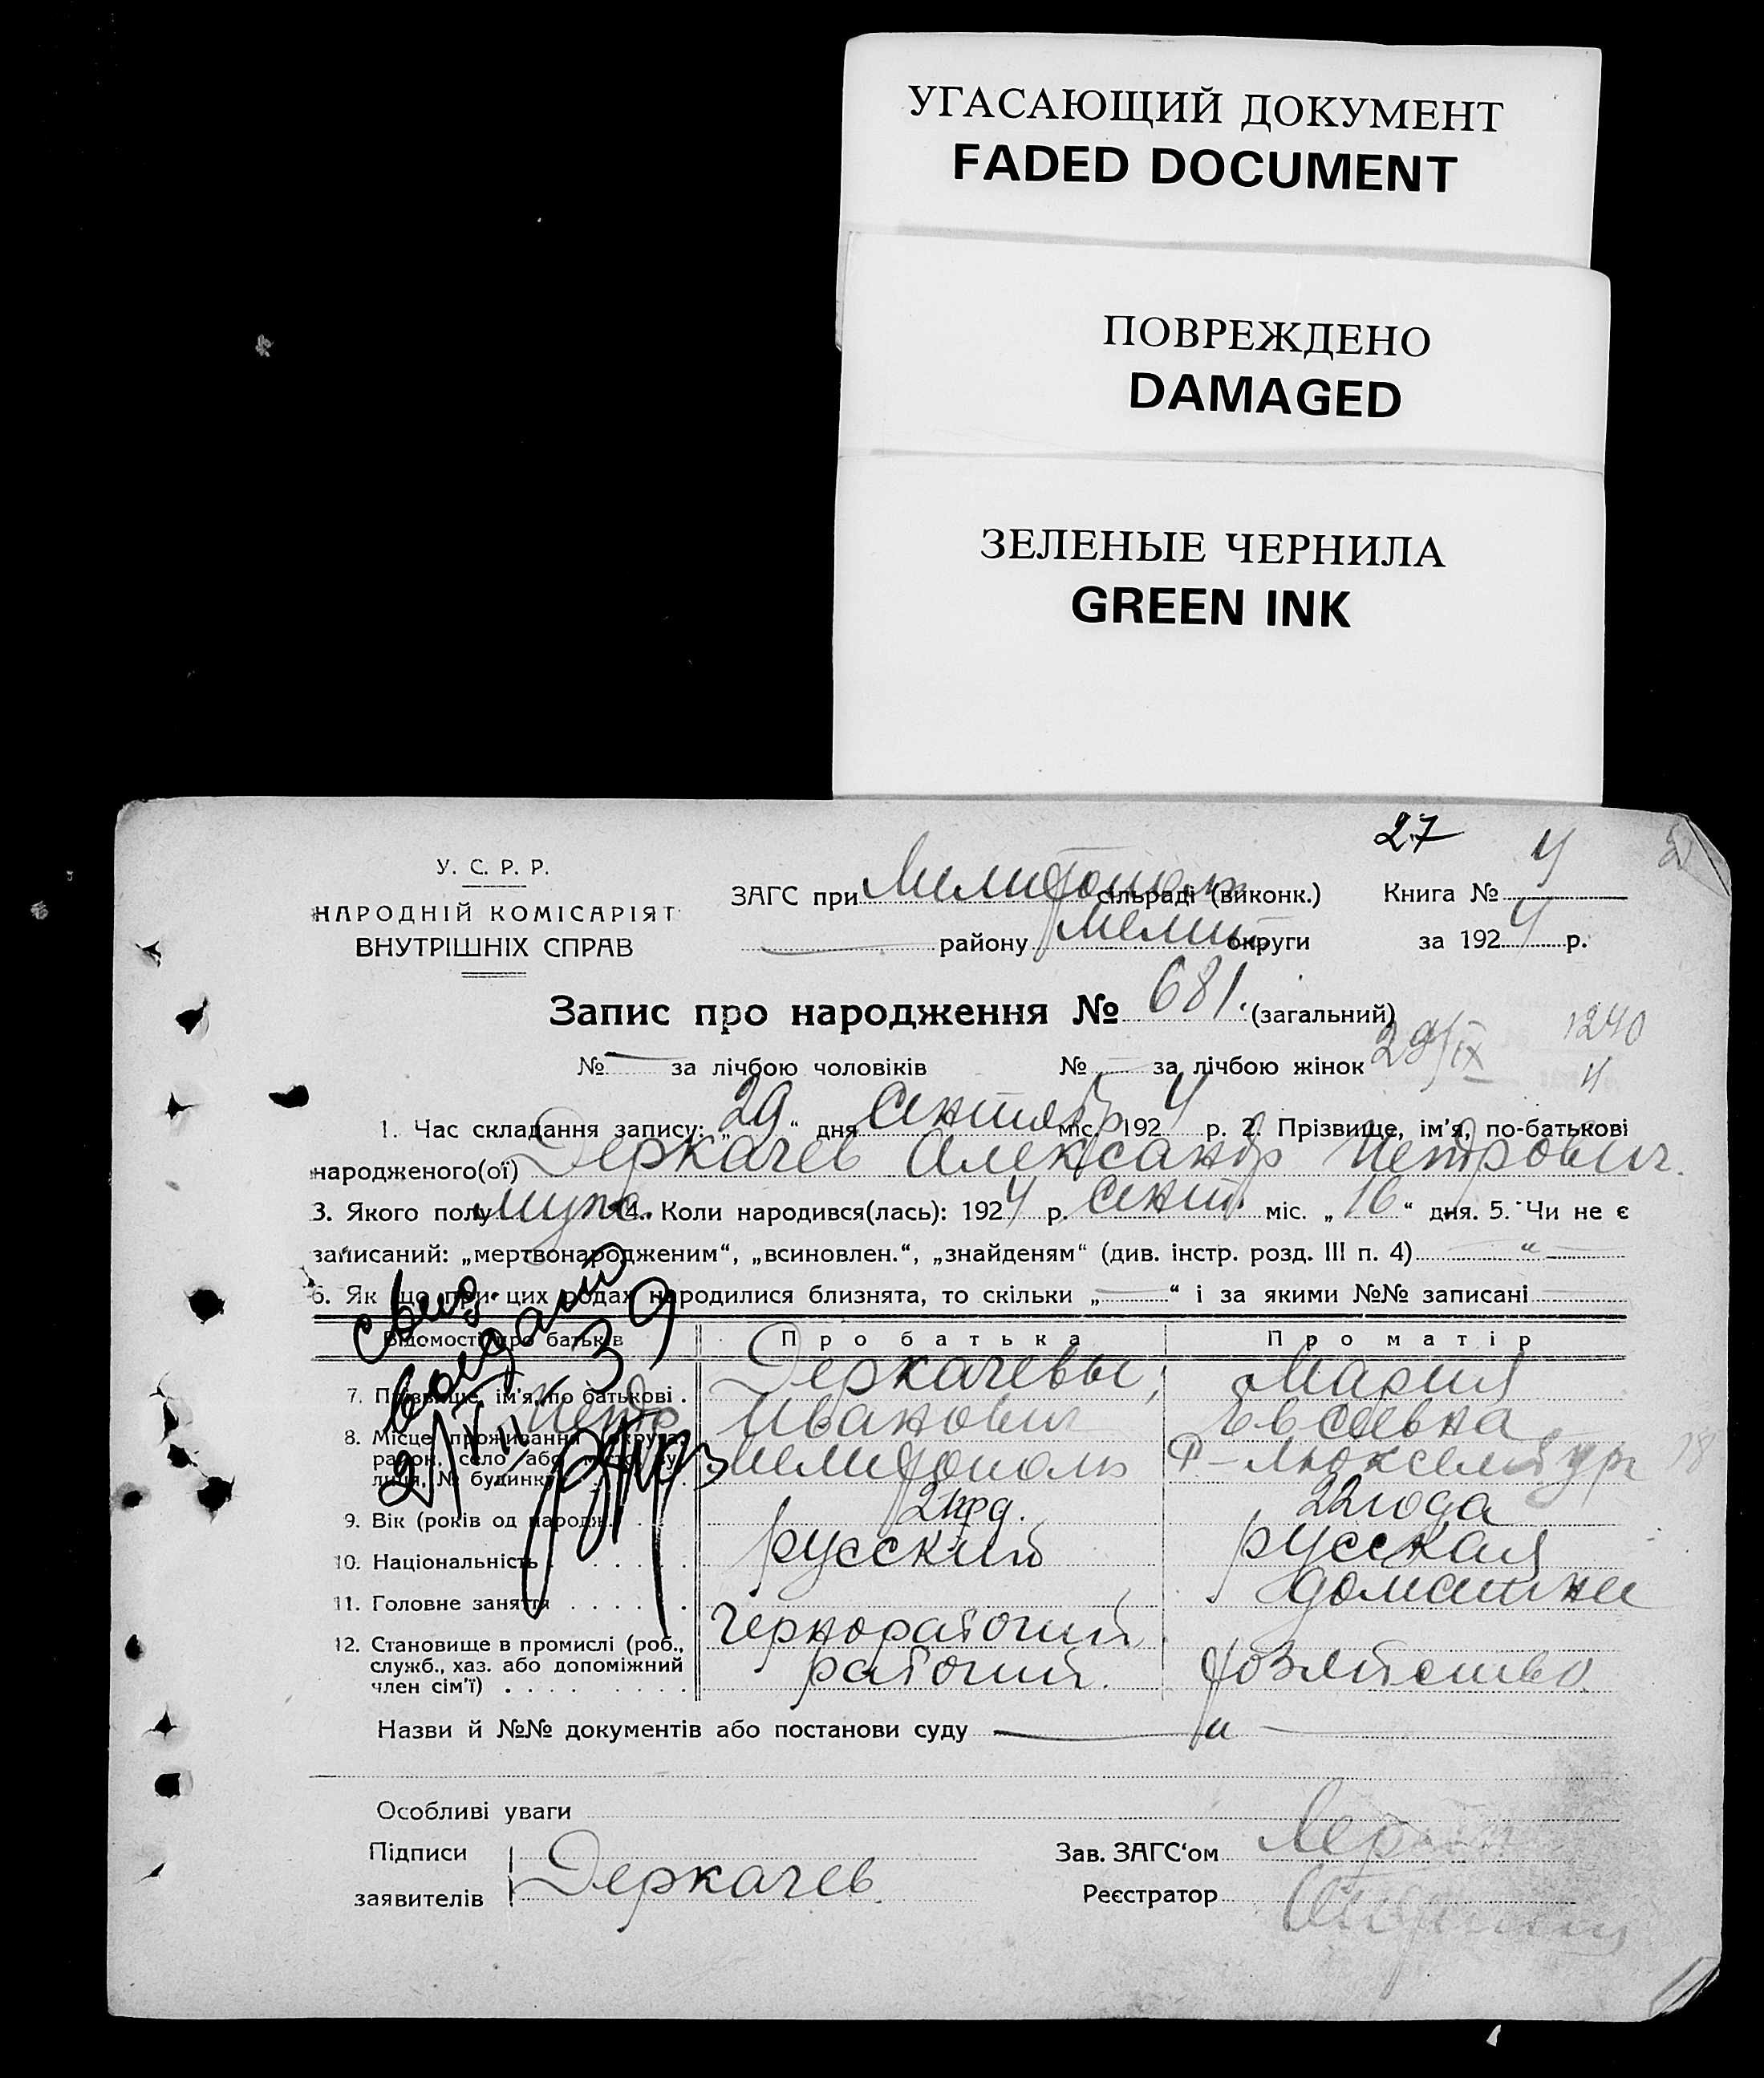 УГАСАЮЩИЙ ДОКУМЕНТ
FADED DOCUMENT
ПОВРЕЖДЕНО
DAMAGED
ЗЕЛЕНЫЕ ЧЕРНИЛА
GREEN INK
27
У. С. Р. Р.
НАРОДНІЙ КОМІСАРІЯТ
ВНУТРІШНІХ СПРАВ
ЗАГС при Мелитополь сільраді (виконк.) Книга № 4
району Мелит. округи за 1924 р.
Запис про народження № 681. (загальний)
29/IX 1240
№ — за лічбою чоловіків № — за лічбою жінок
4
1. Час складання запису: „29“ дня Сентябр міс. 1924 р. 2. Прізвище, ім'я, по-батькові
народженого(ої) Деркачев Александр Петрович.
3. Якого полу муж. 4. Коли народився(лась): 1924 р. сент. міс. „16“ дня. 5. Чи не є
записаний: „мертвонародженим“, „всиновлен.“, „знайденям“ (див. інстр. розд. III п. 4) — “ —
6. Як що при цих родах народилися близнята, то скільки „—“ і за якими №№ записані —
Відомості про батьків Про батька Про матір
7. Прізвище, ім'я, по батькові . Деркачевы, Мария
Петр Иванович Евсеевна
8. Місце проживання (округа, район, село або місто, вулиця, № будинка) Мелитополь Р-Люксембург 18
9. Вік (років од народж.) 22 года
10. Національність русский русская
11. Головне заняття чернорабочий домашнее
12. Становище в промислі (роб., рабочий. хозяйство.
служб., хаз. або допоміжний
член сім'ї)
свид.
выдано
39
Назви й №№ документів або постанови суду — " —
Особливі уваги
Підписи
заявителів Деркачев.
Зав. ЗАГС'ом
Реєстратор